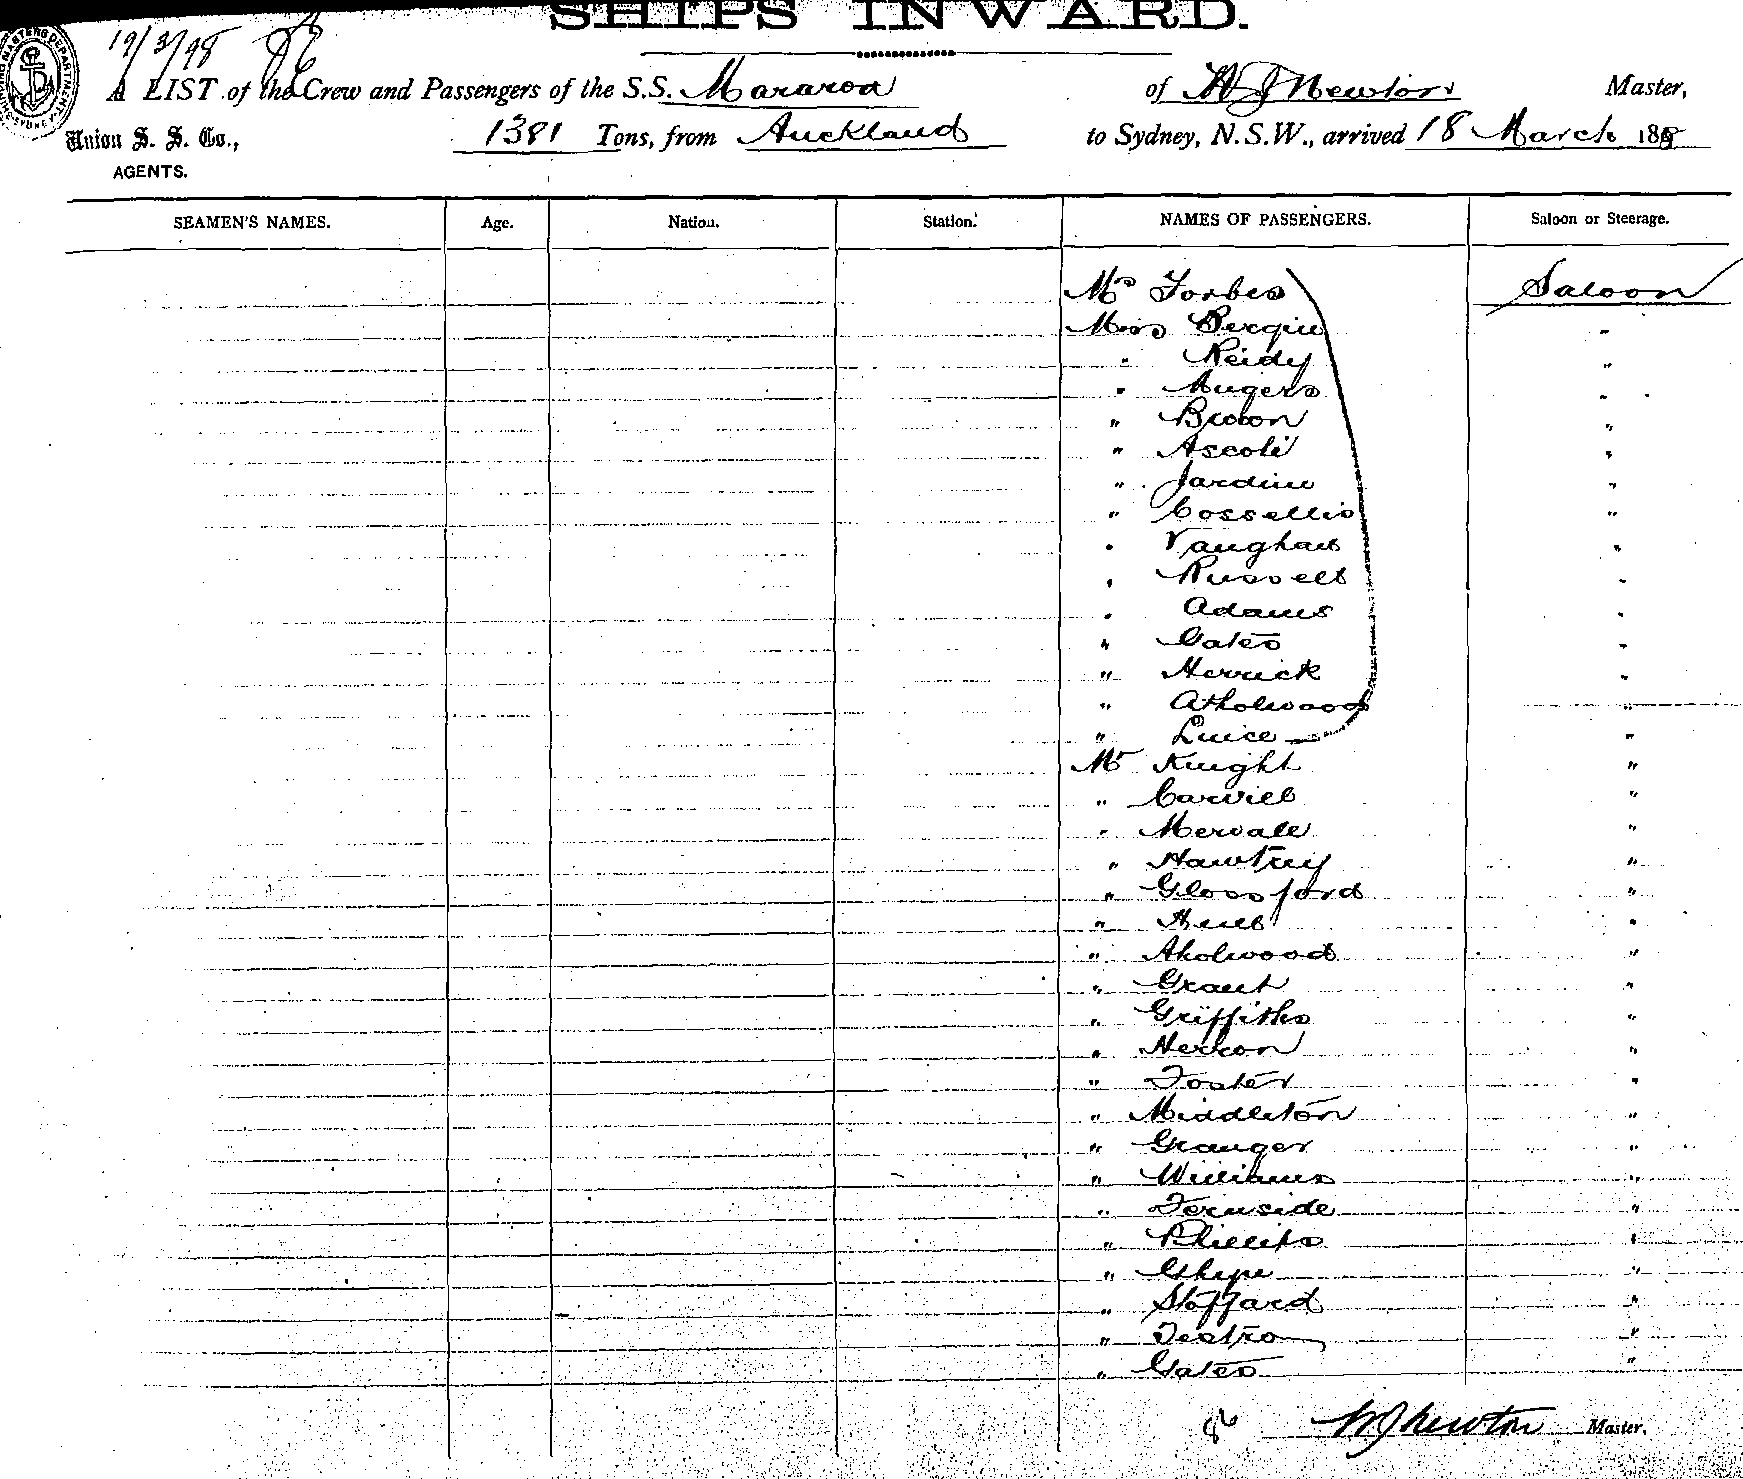 SHIPS INWARD.
19/3/98
A LIST of the Crew and Passengers of the S.S. Mararoa of W J Newton Master,
Union S. S. Co., 1381 Tons, from Auckland to Sydney, N.S.W., arrived 18 March 1898
AGENTS.
SEAMEN'S NAMES. Age. Nation. Station. NAMES OF PASSENGERS. Saloon or Steerage.
Mrs Forbes Saloon
Miss Bergin "
" Reidy "
" "
" Brown "
" Ascoli "
" Jardine "
" "
" Vaughan "
" Russell "
" Adams "
" Gates "
" Herrick "
" Atholwood "
" "
Mr Knight "
" Carvill "
" Mervale "
" Hawtrey "
" Glossford "
" "
" Aholwood "
" Grant "
" Griffiths "
" Herron "
" Foster "
" Middleton "
" Granger "
" Williams "
" Fernside "
" Phillips "
" "
" Stoffard "
" Teatro "
" Gates "
W J Newton Master.